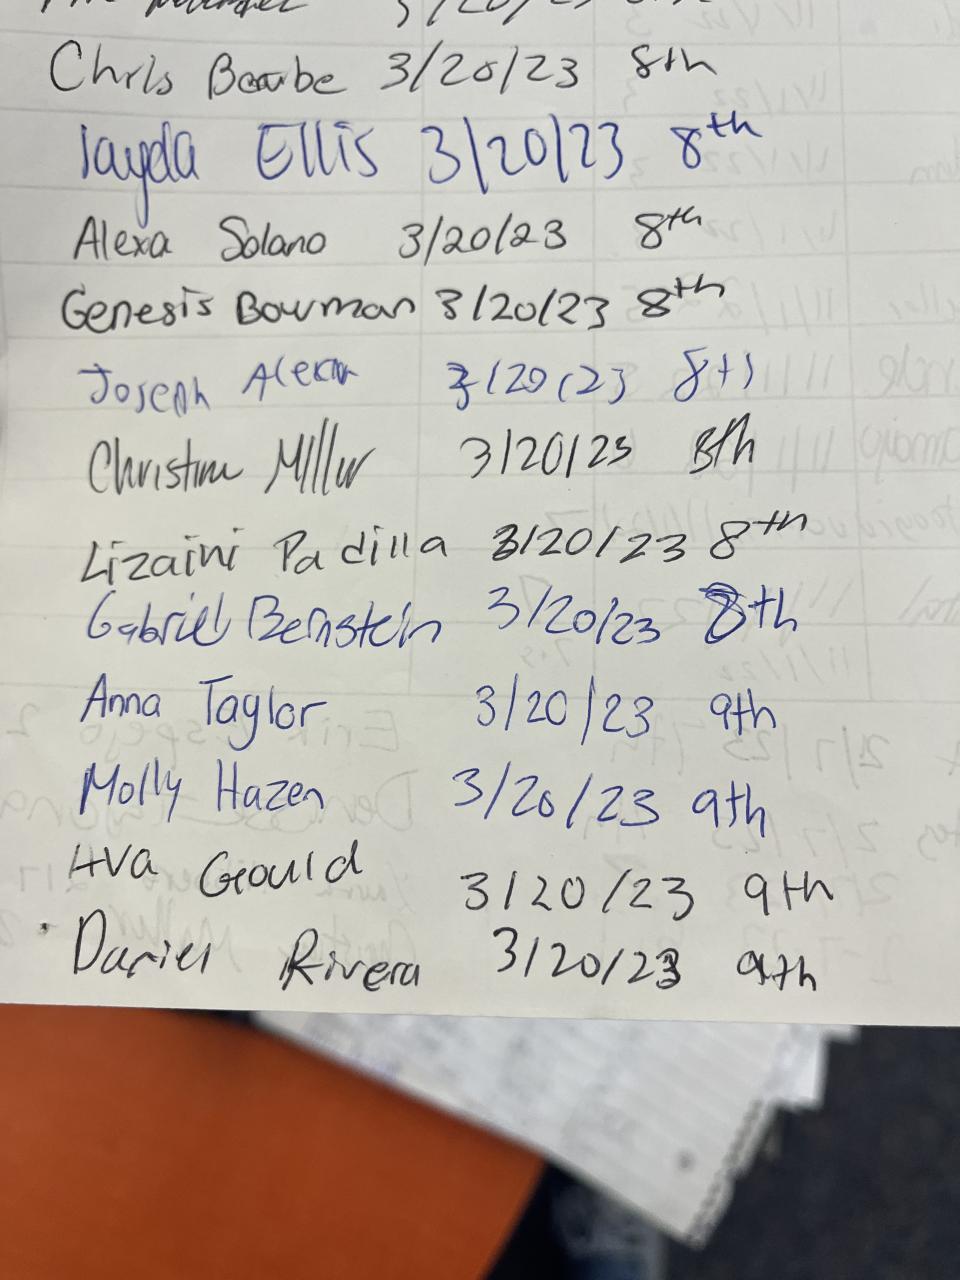 3/20/23
Chris Boube 3/20/23 8th
Jayda Ellis 3/20/23 8th
Alexa Solano 3/20/23 8th
Genesis Bowman 3/20/23 8th
Joseph 3/20/23 8th
Christine Miller 3/20/23 8th
Lizaini Padilla 3/20/23 8th
Gabriel Bernstein 3/20/23 8th
Anna Taylor 3/20/23 9th
Molly Hazen 3/20/23 9th
Ava Gould 3/20/23 9th
Daniel Rivera 3/20/23 9th